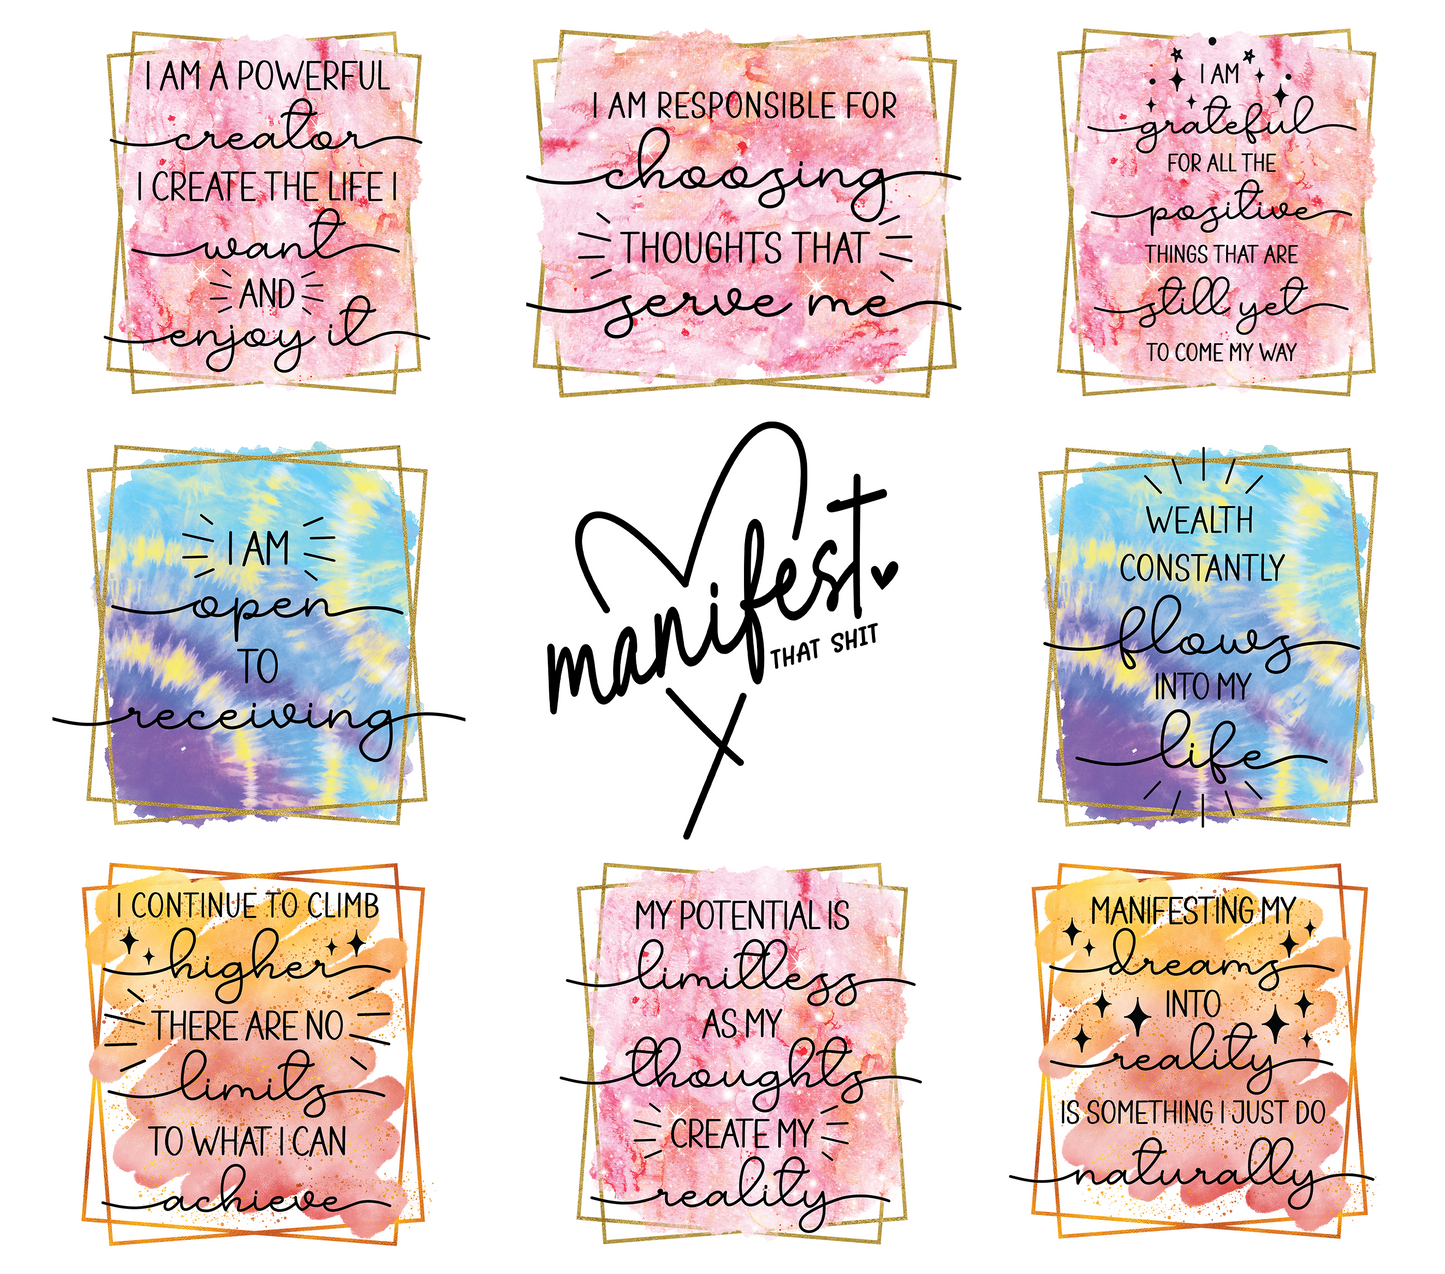 I AM A POWERFUL
creator
I CREATE THE LIFE I
want
AND
enjoy it
I AM RESPONSIBLE FOR
choosing
THOUGHTS THAT
serve me
I AM
grateful
FOR ALL THE
positive
THINGS THAT ARE
still yet
TO COME MY WAY
I AM
open
TO
receiving
manifest
THAT SHIT
WEALTH
CONSTANTLY
flows
INTO MY
life
I CONTINUE TO CLIMB
higher
THERE ARE NO
limits
TO WHAT I CAN
achieve
MY POTENTIAL IS
limitless
AS MY
thoughts
CREATE MY
reality
MANIFESTING MY
dreams
INTO
reality
IS SOMETHING I JUST DO
naturally